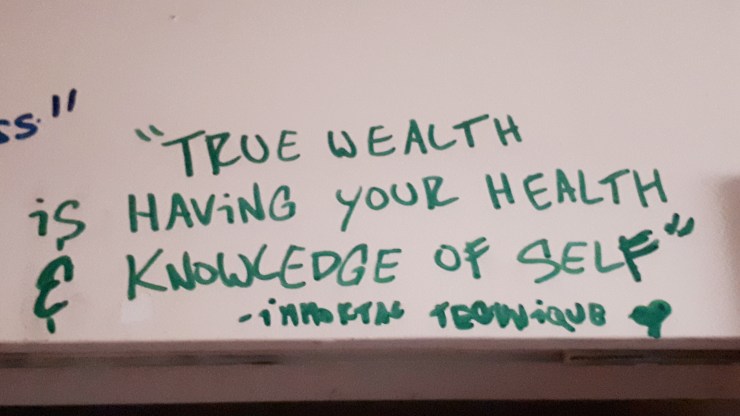 ss."
"TRUE WEALTH
is HAViNG YOUR HEALTH
& KNOWLEDGE OF SELF"
-iMMORTAL TECHNiQUE